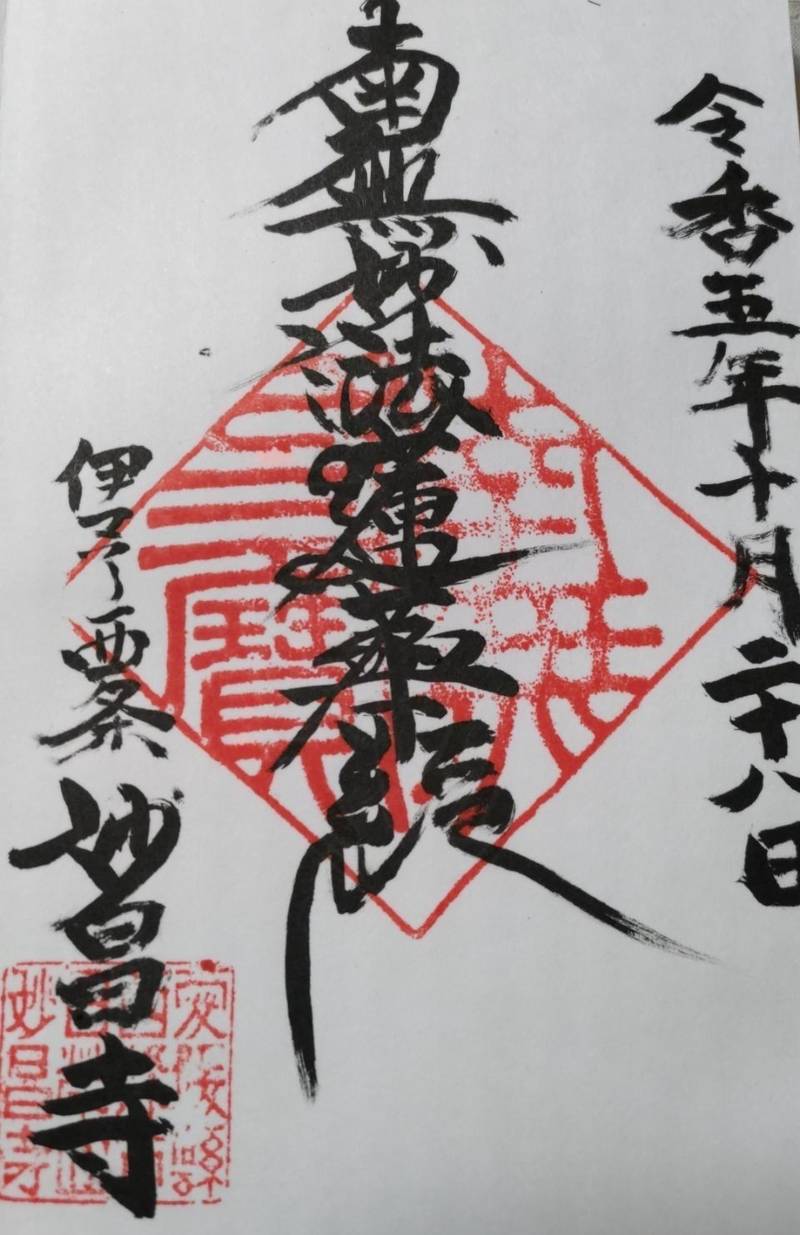 令和五年十月二十八日
南無妙法蓮華経
三寶
伊予西条 妙昌寺
妙昌寺